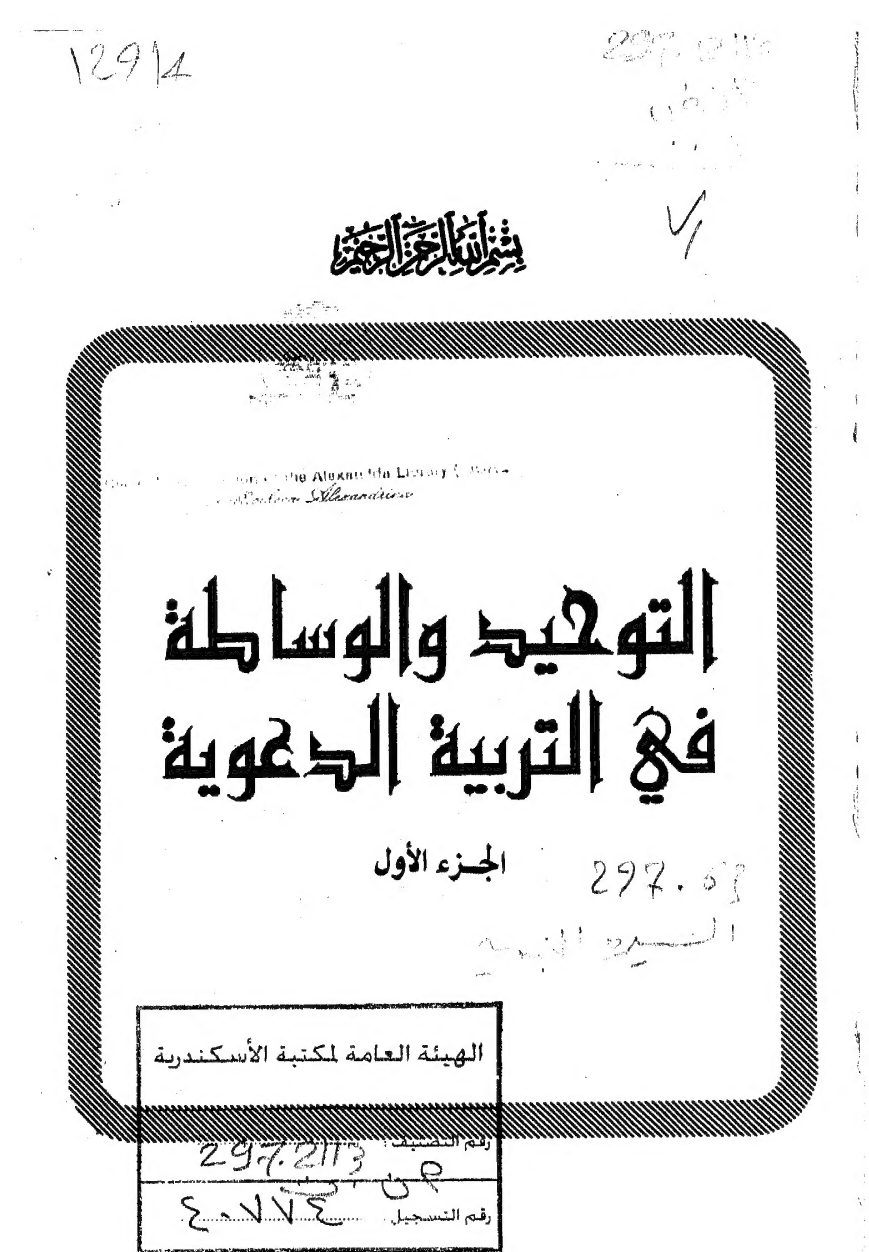 129/1
بسم الله الرحمن الرحيم
the Alexandria Library
Alexandrina
التوحيد والوساطة
في التربية الدعوية
الجزء الأول
297.63
السيرة النبوية
الهيئة العامة لمكتبة الأسكندرية
رقم التصنيف: 297.2113
رقم التسجيل: ٤٠٧٧٤